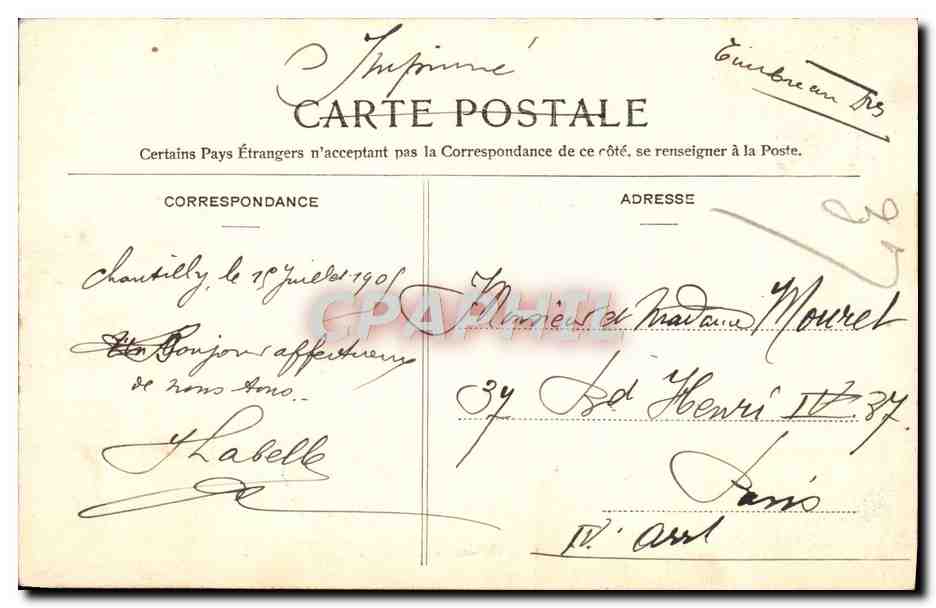 Imprimé
Timbre au Dos
CARTE POSTALE
Certains Pays Étrangers n'acceptant pas la Correspondance de ce côté, se renseigner à la Poste.
CORRESPONDANCE
Chantilly, le 15 Juillet 1905
Un Bonjour affectueux
de nous tous..
Labelle
ADRESSE
Monsieur et Madame Mouret
37 Bd Henri IV. 37.
Paris
IV. Arrt
CPAPHIL